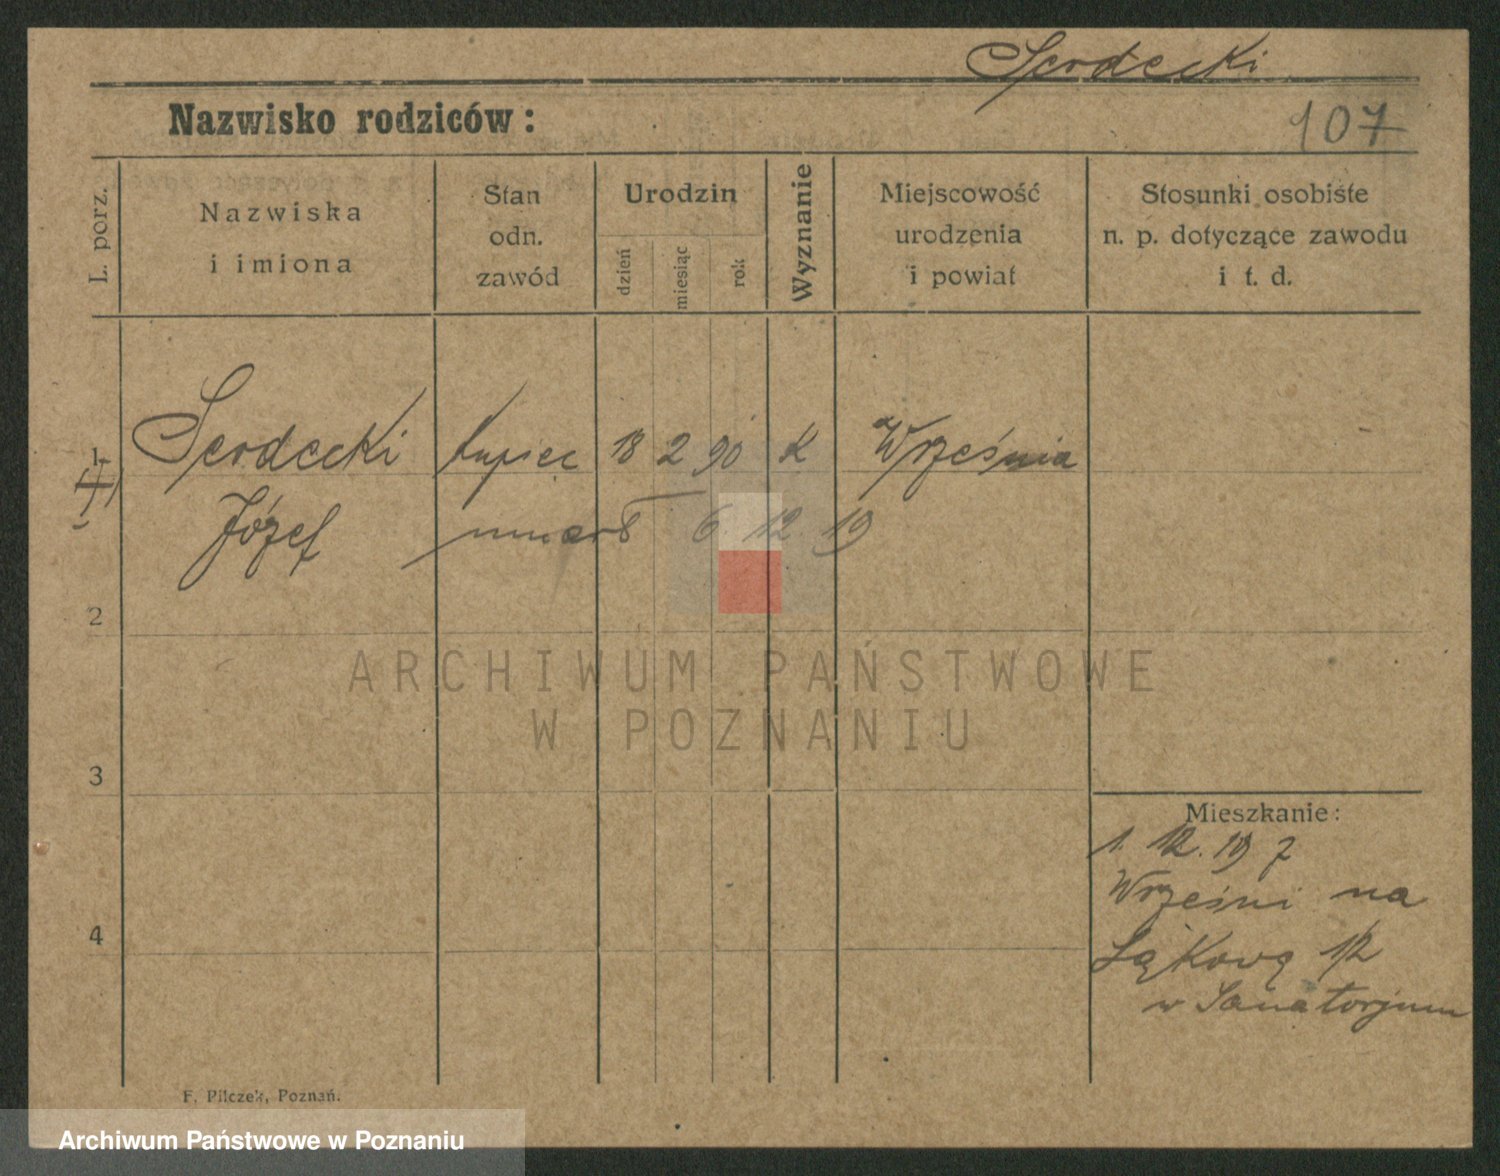 Serdecki
Nazwisko rodziców:
107
L. porz.
Nazwiska
i imiona
Stan
odn.
zawód
Urodzin
dzień
miesiąc
rok
Wyznanie
Miejscowość
urodzenia
i powiat
Stosunki osobiste
n. p. dotyczące zawodu
i t. d.
1
Serdecki kupiec 18 2 90 k Września
Józef umarł 6. 12. 19
2
ARCHIWUM PAŃSTWOWE
W POZNANIU
3
Mieszkanie:
1. 12. 19 z
Wrześni na
Łąkową 1/2
w Sanatorjum
4
F. Pilczek, Poznań.
Archiwum Państwowe w Poznaniu